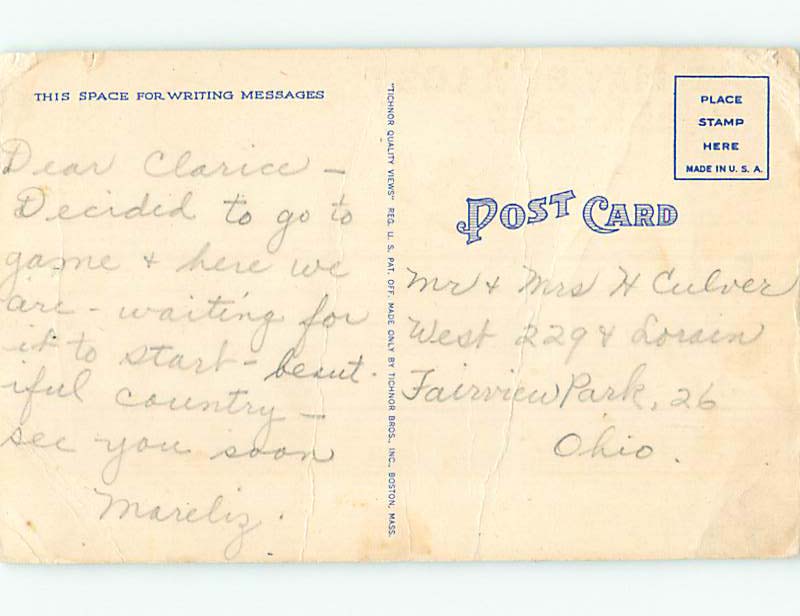 THIS SPACE FOR WRITING MESSAGES
Dear Clarice -
Decided to go to
game + here we
are - waiting for
it to start - beaut-
iful country -
see you soon
Mareliz.
"TICHNOR QUALITY VIEWS" REG. U. S. PAT. OFF. MADE ONLY BY TICHNOR BROS., INC., BOSTON, MASS.
PLACE
STAMP
HERE
MADE IN U. S. A.
POST CARD
Mr + Mrs H Culver
West 229 + Lorain
Fairview Park, 26
Ohio.